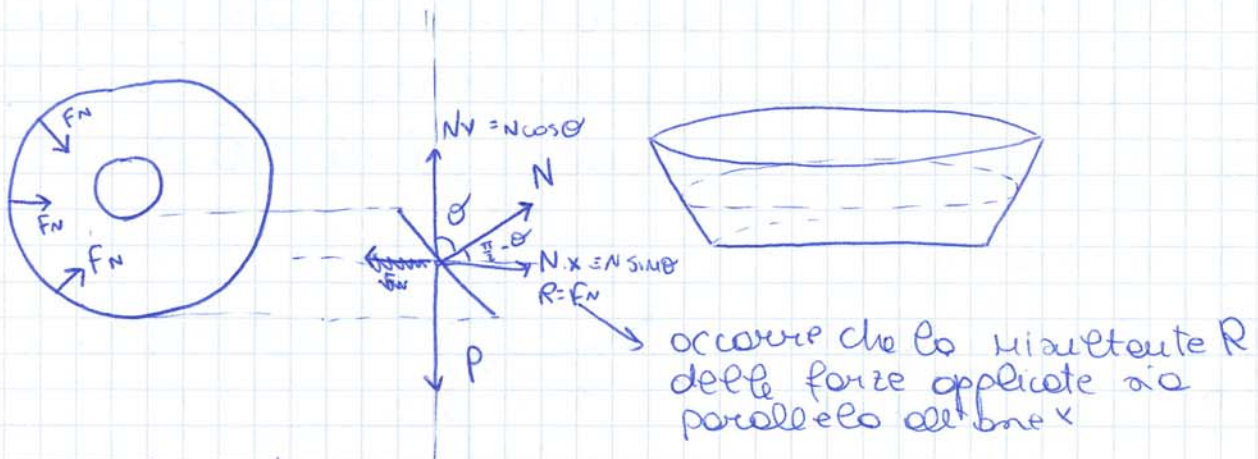 FN
FN
FN
Ny = N cosθ
N
θ
π/2 - θ
N.x = N sinθ
R = FN
P
occorre che la risultante R
delle forze applicate sia
parallela all'asse x